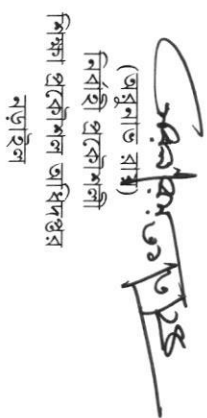 (অরুনাভ রায়)
নির্বাহী প্রকৌশলী
শিক্ষা প্রকৌশল অধিদপ্তর
নড়াইল